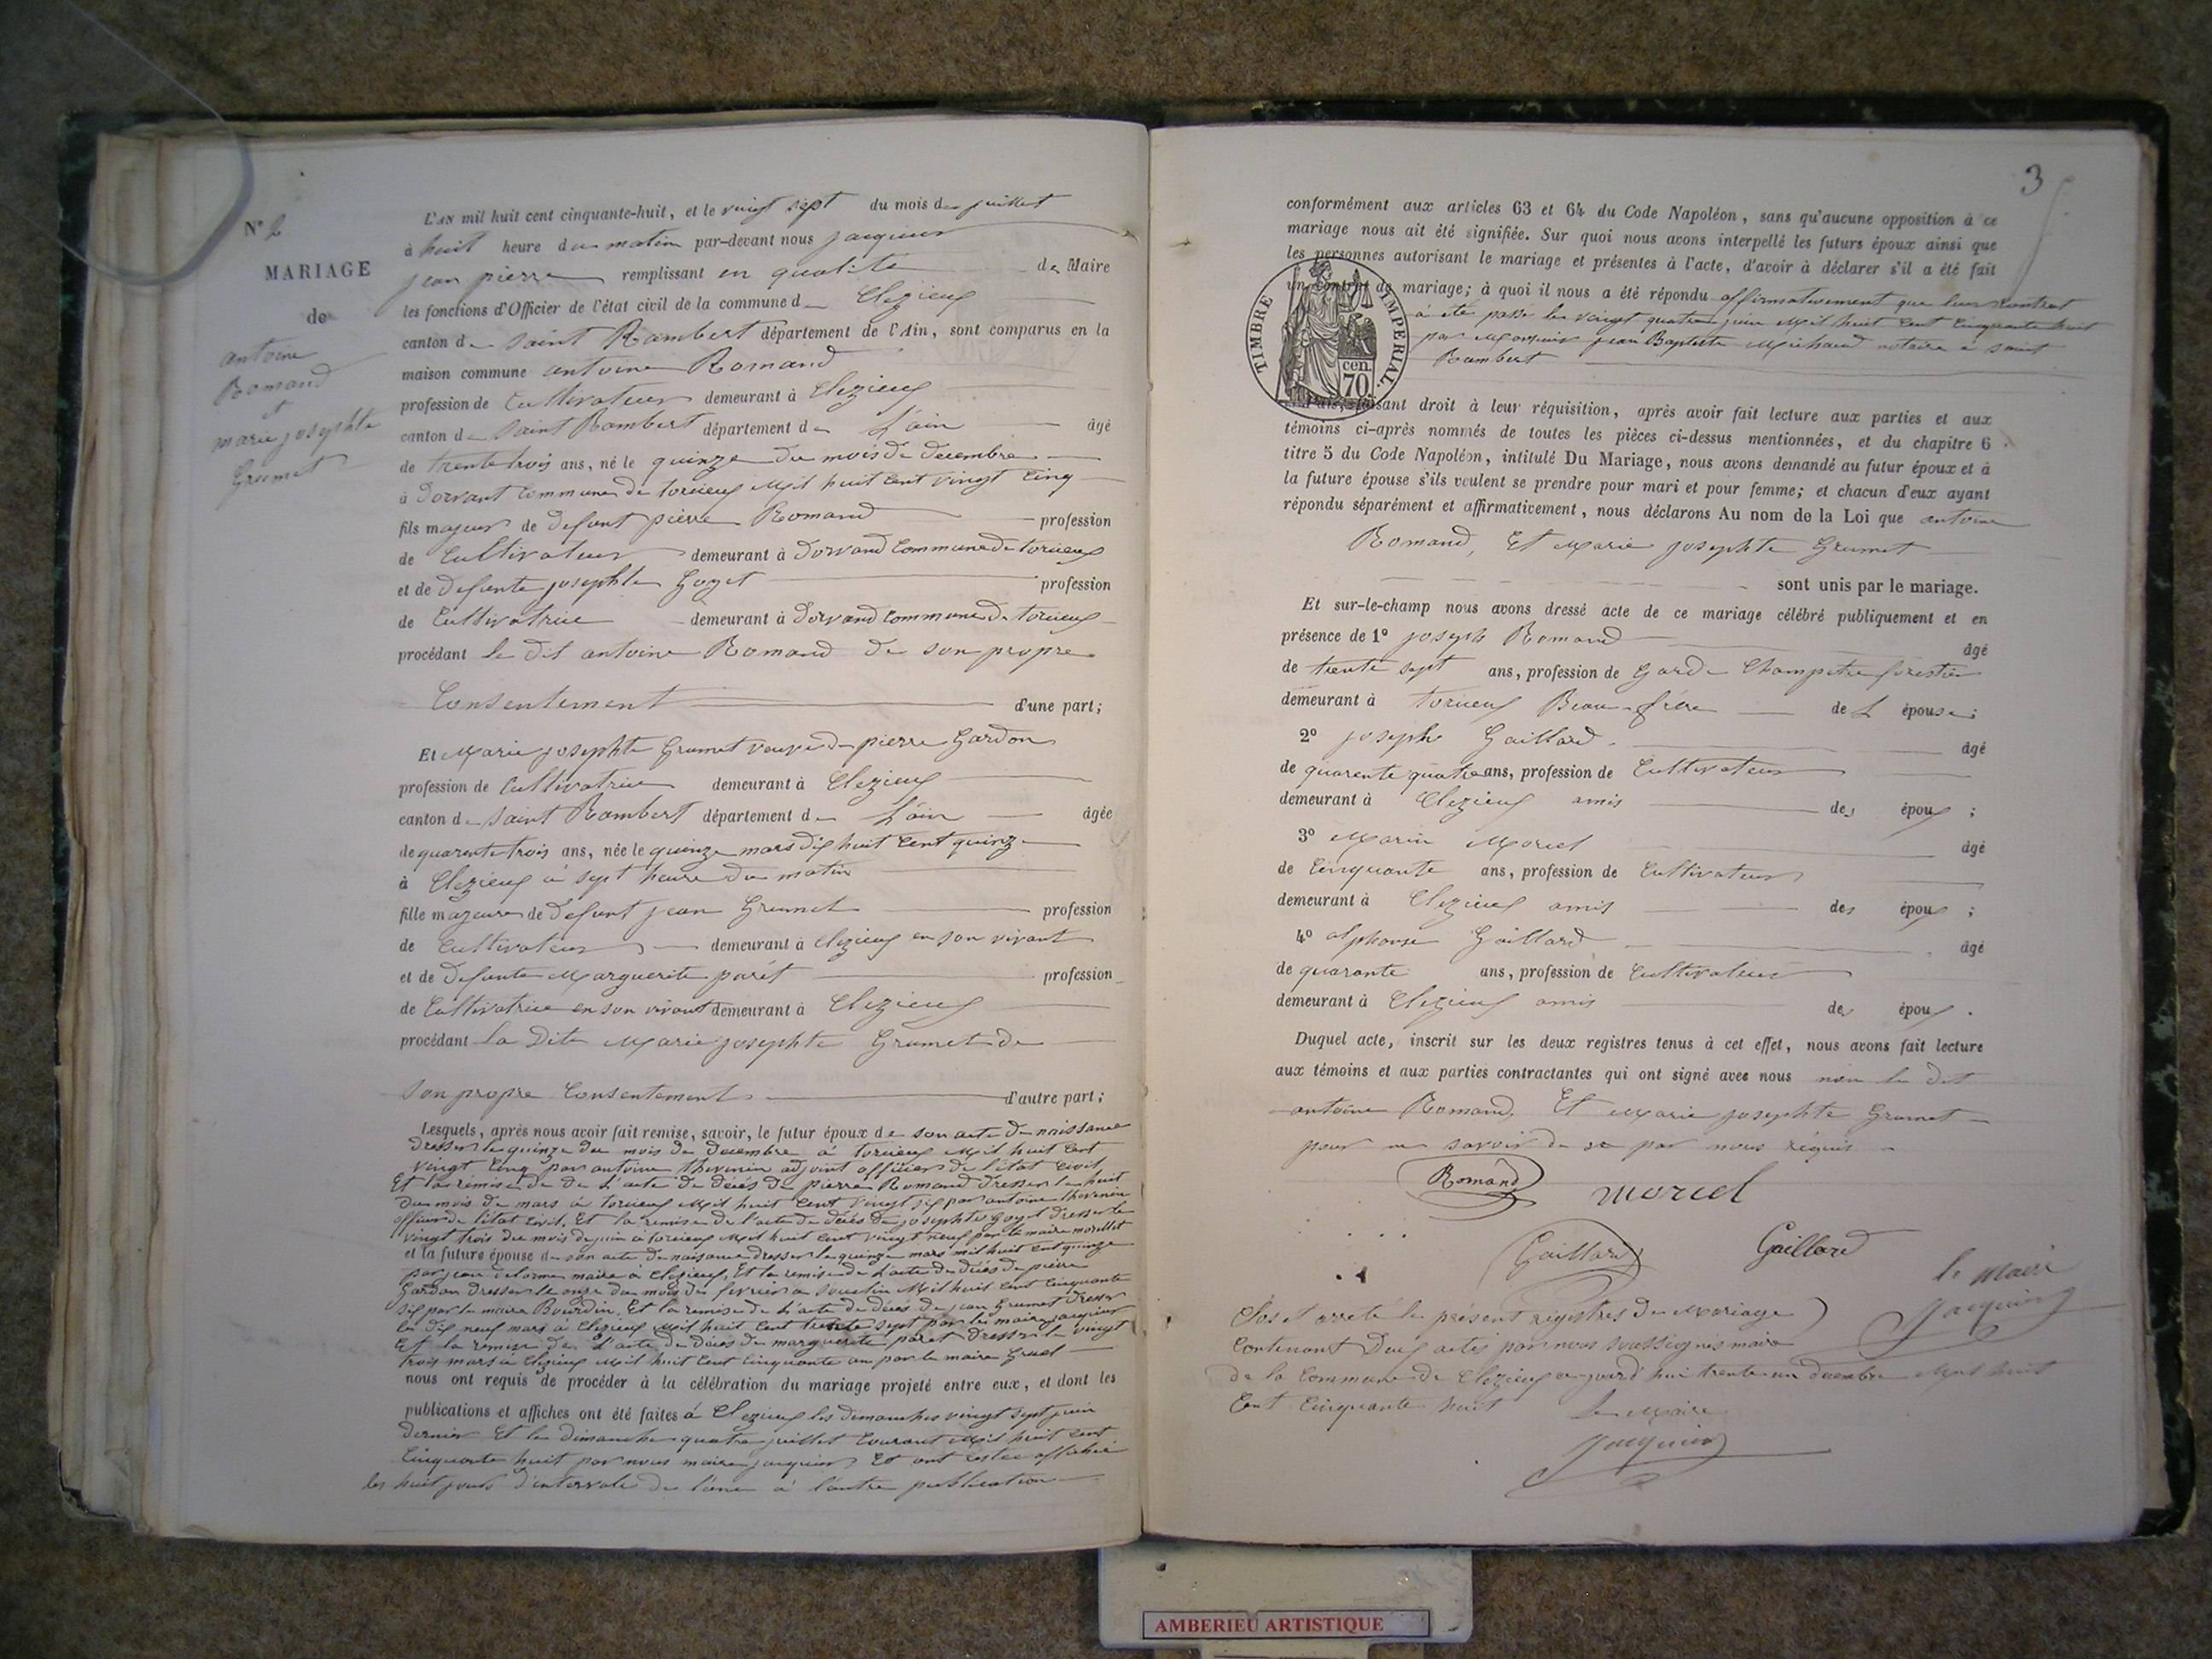 N° 2
MARIAGE
de
antoine
Romand
et
marie josephte
Grumet
L'AN mil huit cent cinquante-huit, et le vingt sept du mois de juillet
à huit heure du matin par-devant nous jacquier
jean pierre remplissant en qualité de Maire
les fonctions d'Officier de l'état civil de la commune d Clezieux
canton de saint Rambert département de l'Ain, sont comparus en la
maison commune antoine Romand
profession de Cultivateur demeurant à Clezieux
canton de saint Rambert département de L'ain âgé
de trente trois ans, né le quinze du mois de decembre
à Dorvant Commune de torcieux Mil huit Cent vingt Cinq
fils majeur de defunt pierre Romand profession
de Cultivateur demeurant à Dorvand Commune de torcieux
et de defunte josephte Goyet profession
de Cultivatrice demeurant à Dorvand Commune de torcieux
procédant le dit antoine Romand de son propre
Consentement d'une part;
Et Marie josephte Grumet veuve de pierre Gardon
profession de Cultivatrice demeurant à Clezieux
canton de saint Rambert département de L'ain âgée
de quarente trois ans, née le quinze mars dix huit Cent quinze
à Clezieux à sept heure du matin
fille majeure de defunt jean Grumet profession
de Cultivateur demeurant à Clezieux en son vivant
et de defunte Marguerite parét profession
de Cultivatrice en son vivant demeurant à Clezieux
procédant la dite Marie josephte Grumet de
son propre Consentement d'autre part;
Lesquels, après nous avoir fait remise, savoir, le futur époux de son acte de naissance
dresser le quinze du mois de decembre à torcieux Mil huit Cent
vingt Cinq par antoine thevenin adjoint officier de l'état Civil
Et la remise de de L'acte de décés de pierre Romand dresser le huit
du mois de mars à torcieux Mil huit Cent vingt six par antoine thevenin
officier de l'état Civil, Et la remise de l'acte de décés de josephte Goyet dresser le
vingt trois du mois de juin à torcieux Mil huit Cent vingt neuf par le maire morellet
et la future épouse de son acte de naissance dresser le quinze mars mil huit cent quinze
par jean delorme maire à Clezieux, Et la remise de L'acte de décés de pierre
Gardon dresser le onze du mois de fevrier à souclin Mil huit Cent Cinquante
six par le maire Bourdin, Et la remise de L'acte de décés de jean Grumet dresser
le dix neuf mars à Clezieux Mil huit Cent trente sept par le maire jacquier
Et la remise de L'acte de décés de marguerite paret dresser le vingt
trois mars à Clezieux Mil huit Cent Cinquante un par le maire Gruel
nous ont requis de procéder à la célébration du mariage projeté entre eux, et dont les
publications et affiches ont été faites à Clezieux les dimanches vingt sept juin
dernier Et le dimanche quatre juillet Courant Mil huit Cent
Cinquante huit par nous maire jacquier Et ont restee affichée
les huit jours d'intervale de l'une à l'autre publication
3
conformément aux articles 63 et 64 du Code Napoléon, sans qu'aucune opposition à ce
mariage nous ait été signifiée. Sur quoi nous avons interpellé les futurs époux ainsi que
les personnes autorisant le mariage et présentes à l'acte, d'avoir à déclarer s'il a été fait
un contrat de mariage; à quoi il nous a été répondu affirmativement que leur contrat
à été passé le vingt quatre juin Mil huit Cent Cinquante huit
par Monsieur jean Baptiste Michaud notaire à saint
Rambert
TIMBRE IMPERIAL.
70 cen.
Puis, faisant droit à leur réquisition, après avoir fait lecture aux parties et aux
témoins ci-après nommés de toutes les pièces ci-dessus mentionnées, et du chapitre 6
titre 5 du Code Napoléon, intitulé Du Mariage, nous avons demandé au futur époux et à
la future épouse s'ils veulent se prendre pour mari et pour femme; et chacun d'eux ayant
répondu séparément et affirmativement, nous déclarons Au nom de la Loi que antoine
Romand, Et Marie josephte Grumet
sont unis par le mariage.
Et sur-le-champ nous avons dressé acte de ce mariage célébré publiquement et en
présence de 1° joseph Romand âgé
de trente sept ans, profession de Garde Champetre forestier
demeurant à torcieux Beau-frére de L épouse;
2° joseph Gaillard âgé
de quarente quatre ans, profession de Cultivateur
demeurant à Clezieux amis des époux;
3° Marin Morel âgé
de Cinquante ans, profession de Cultivateur
demeurant à Clezieux amis des époux;
4° alphonse Gaillard âgé
de quarante ans, profession de Cultivateur
demeurant à Clezieux amis des époux.
Duquel acte, inscrit sur les deux registres tenus à cet effet, nous avons fait lecture
aux témoins et aux parties contractantes qui ont signé avec nous non le dit
antoine Romand, Et Marie josephte Grumet
pour ne savoir de ce par nous réquis
Romand morel
Gaillard Gaillard
le Maire
Jacquier
Clos et arreté le présent registres de Mariage
Contenant deux actes par nous soussignés maire
de la Commune de Clezieux ce jourd'hui trente un decembre Mil huit
Cent Cinquante huit Le Maire
Jacquier
AMBERIEU ARTISTIQUE